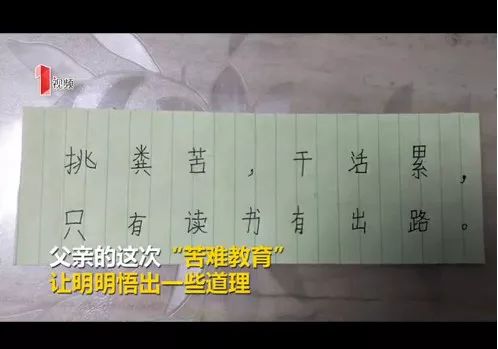 1视频
挑粪苦，干活累，
只有读书有出路。
父亲的这次“苦难教育”
让明明悟出一些道理